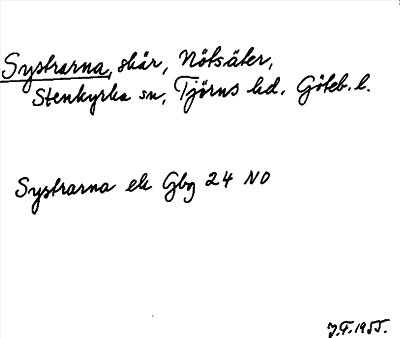 Systrarna, skär, Nötsäter,
Stenkyrka sn, Tjörns hd. Göteb. l.
Systrarna ek Gbg 24 NO
J.F. 1955.